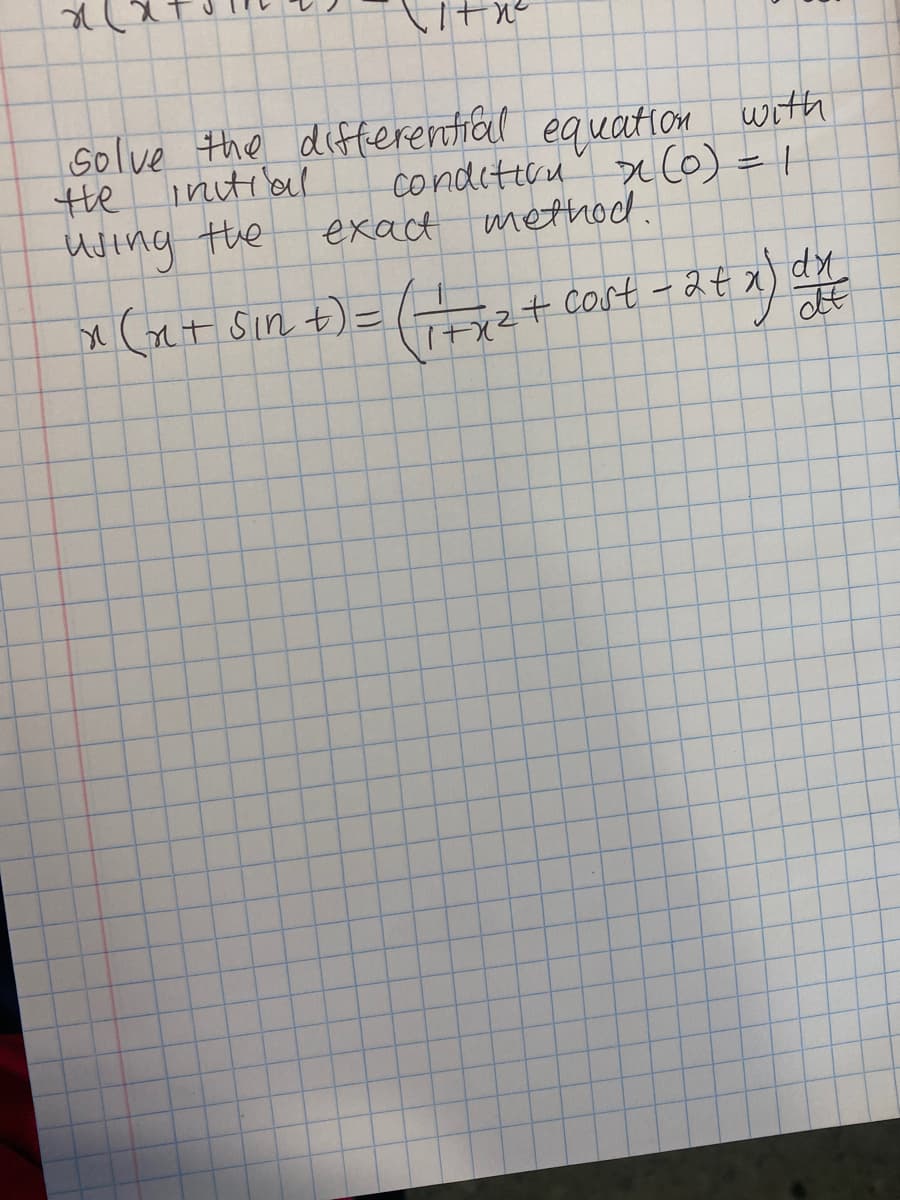 x(x+sin t) (1+x²
solve the differential equation with
the initial condition x(0) = 1
using the exact method.
x(x+ sin t) = (1/(1+x²) + cost - 2tx) dx/dt